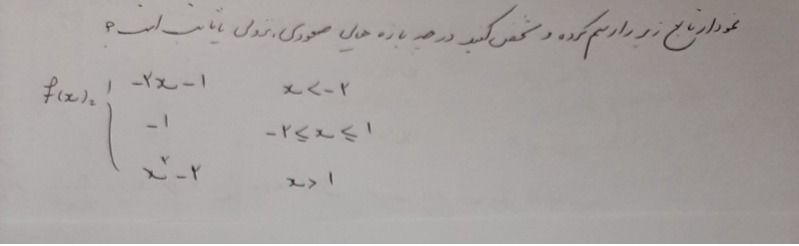 نمودار تابع زیر را رسم کرده و مشخص کنید در چه بازه هایی صعودی، نزولی یا ثابت است؟
f(x)= { -۲x - ۱    x < -۲
-۱    -۲ ≤ x ≤ ۱
x^۲ - ۲    x > ۱